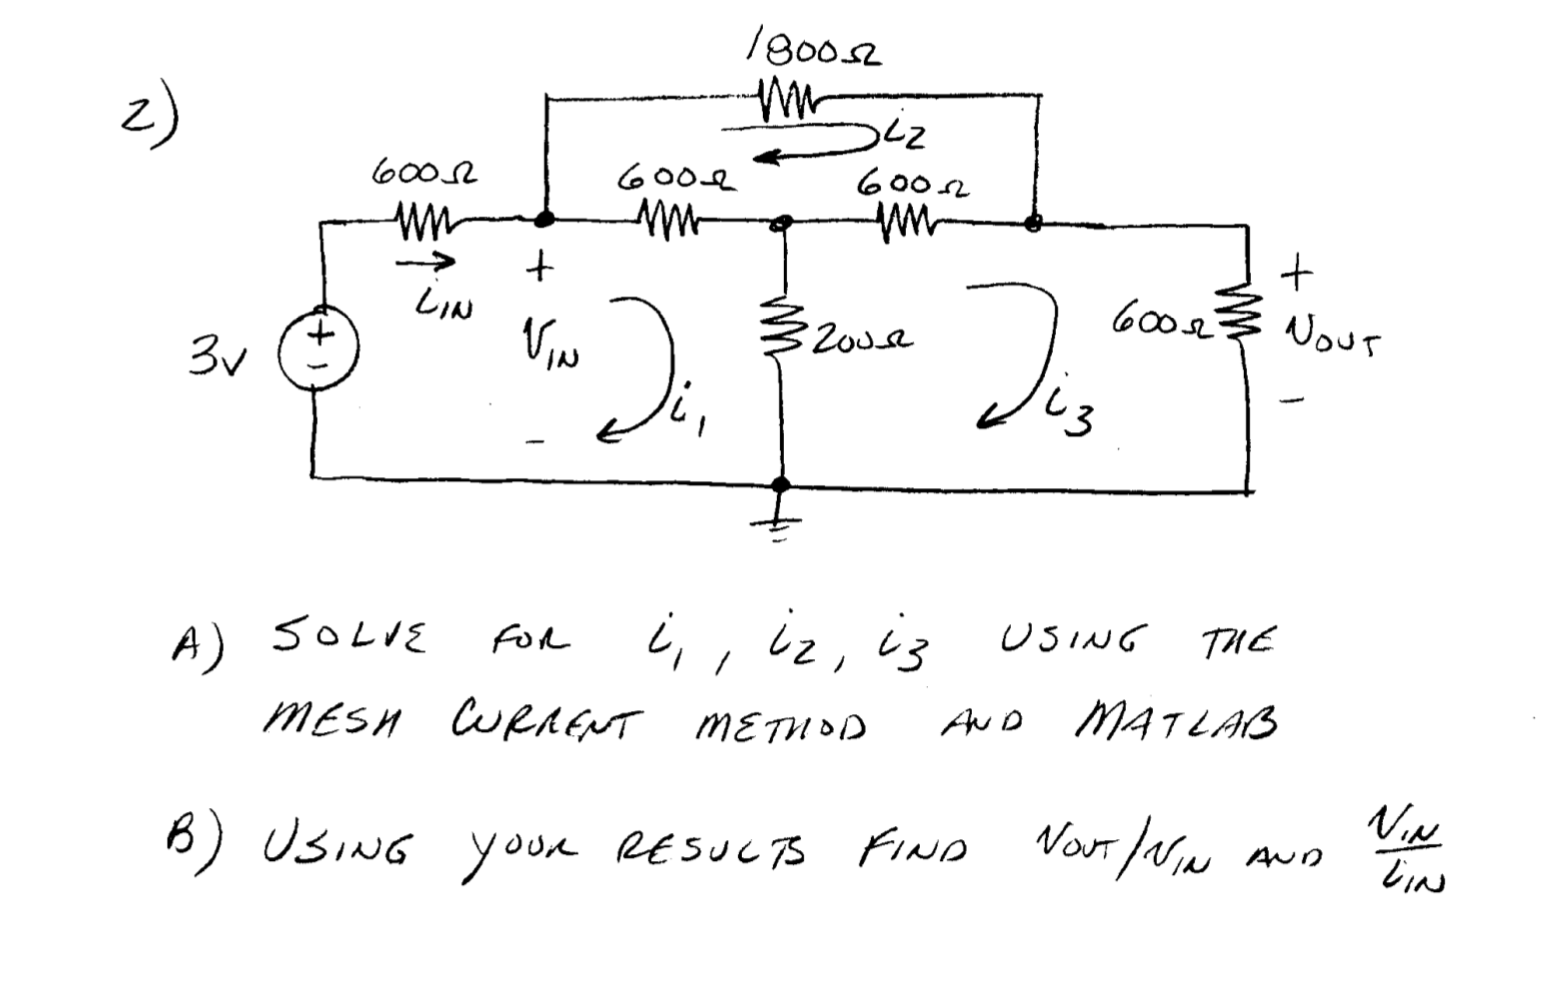 2)
1800Ω
i2
600Ω
600Ω
600Ω
iIN
+
VIN
-
3v
+
-
i1
200Ω
i3
600Ω
+
VOUT
-
A) SOLVE FOR i1, i2, i3 USING THE
MESH CURRENT METHOD AND MATLAB
B) USING YOUR RESULTS FIND VOUT/VIN AND VIN/iIN